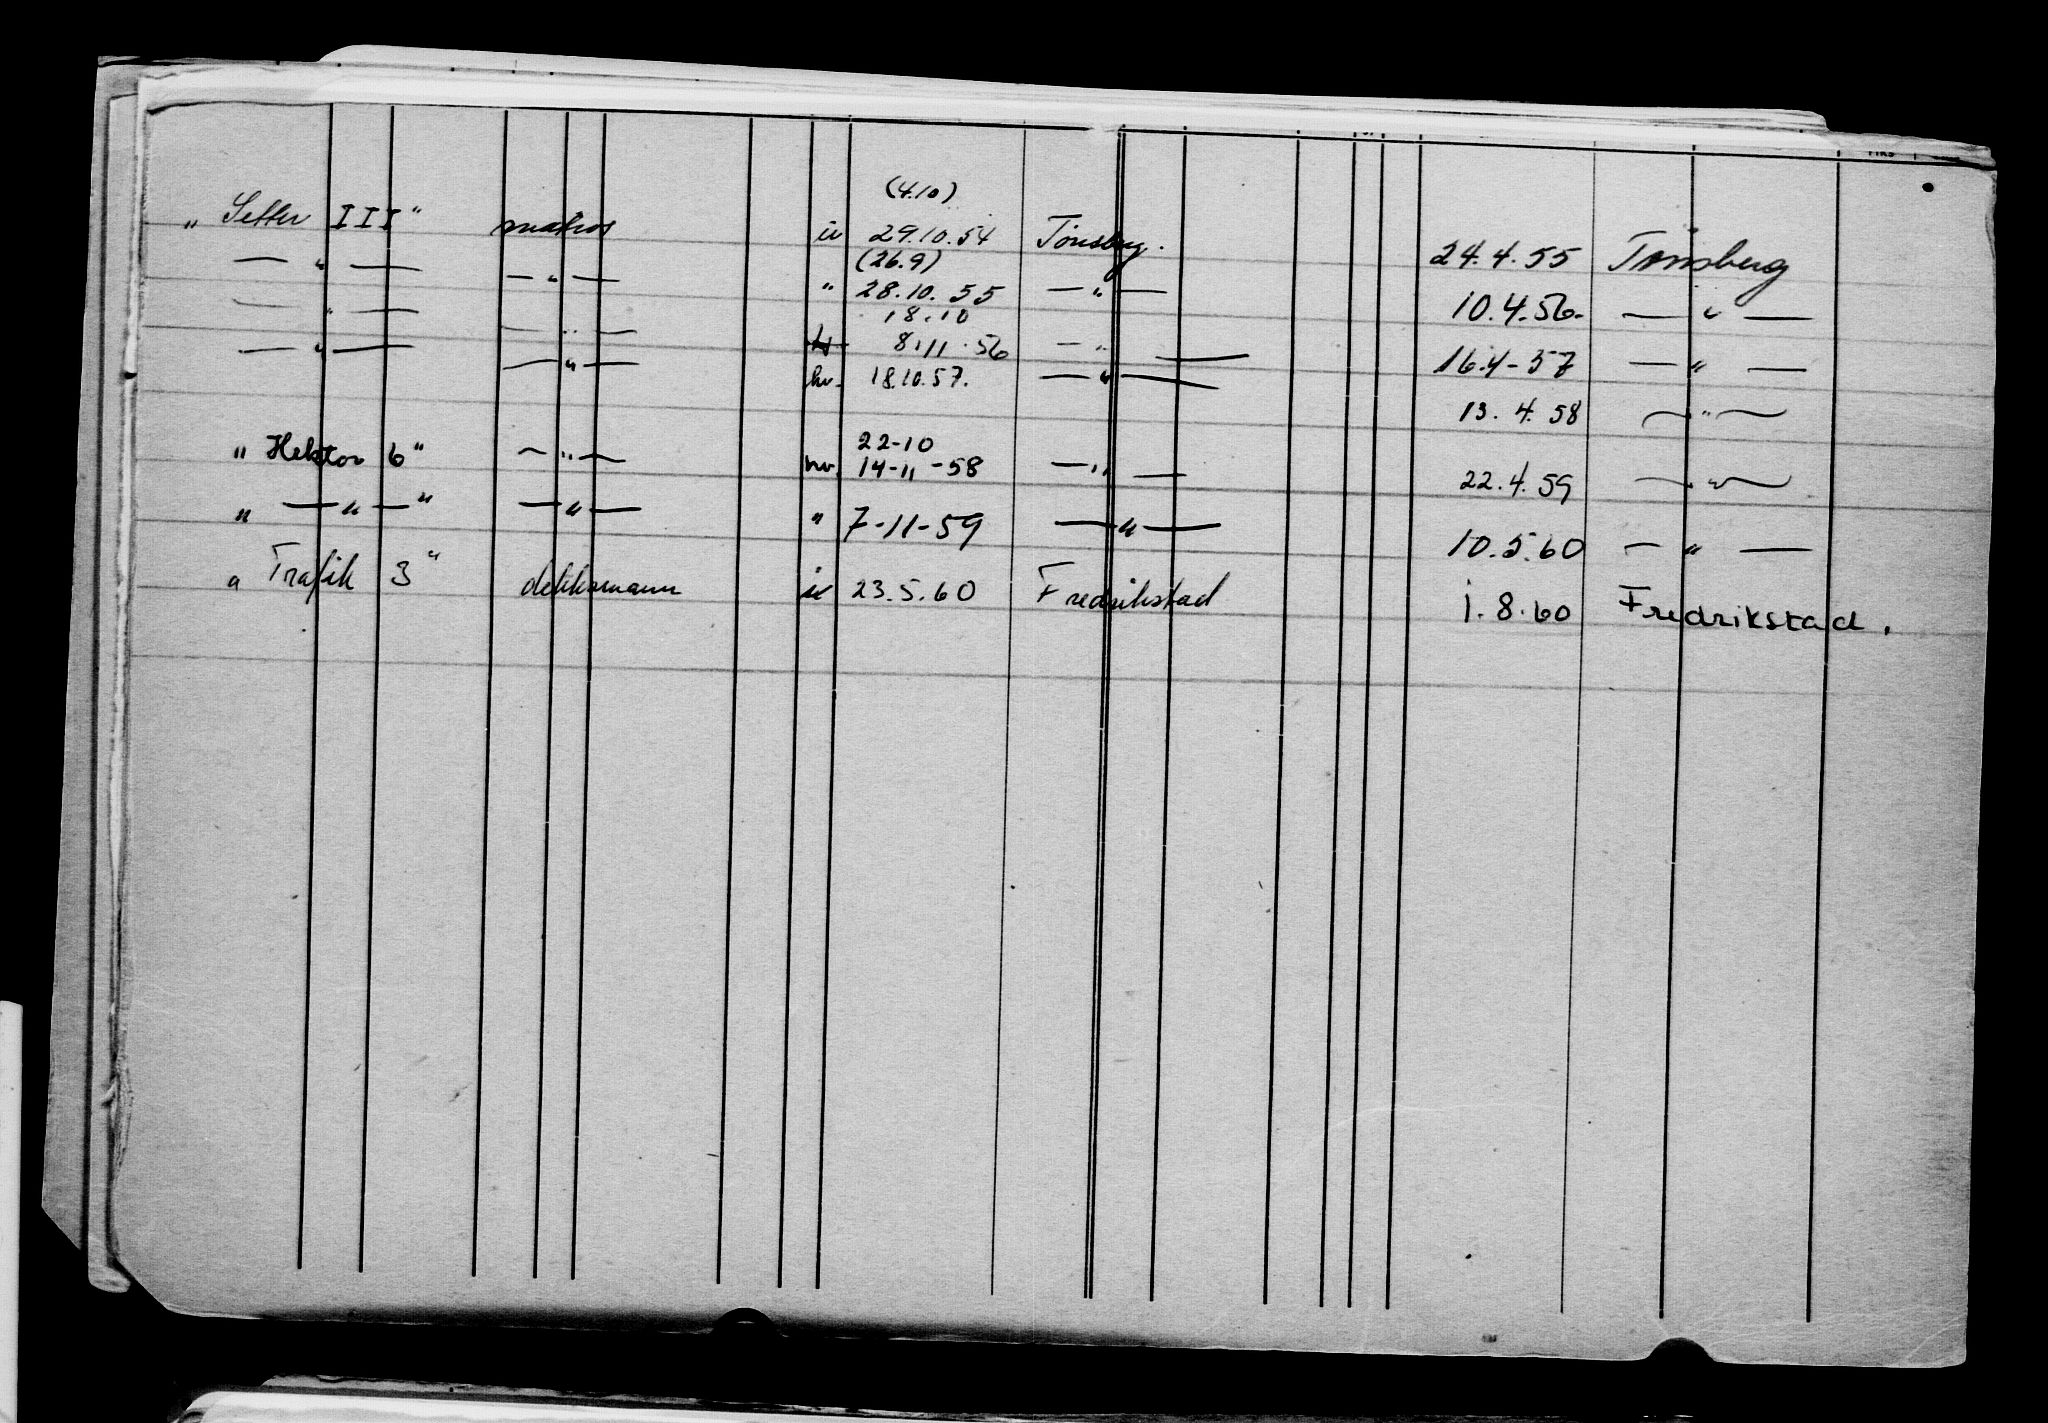 (4.10)
„ Setter III" matros u 29.10.54 Tönsberg. 24.4.55 Tönsberg
(26.9)
— " — — " — " 28.10.55 — " — 10.4.56. — " —
18.10
— " — — " — 8.11.56 — " — 16.4-57 — " —
— " — — " — hv. 18.10.57. — " — 13.4.58 — " —
22-10
" Hektor 6" — " — hv. 14-11-58 — " — 22.4.59 — " —
" — " — " — " — " 7-11-59 — " — 10.5.60 — " —
" Trafik 3" dekksmann u 23.5.60 Fredrikstad 1.8.60 Fredrikstad.